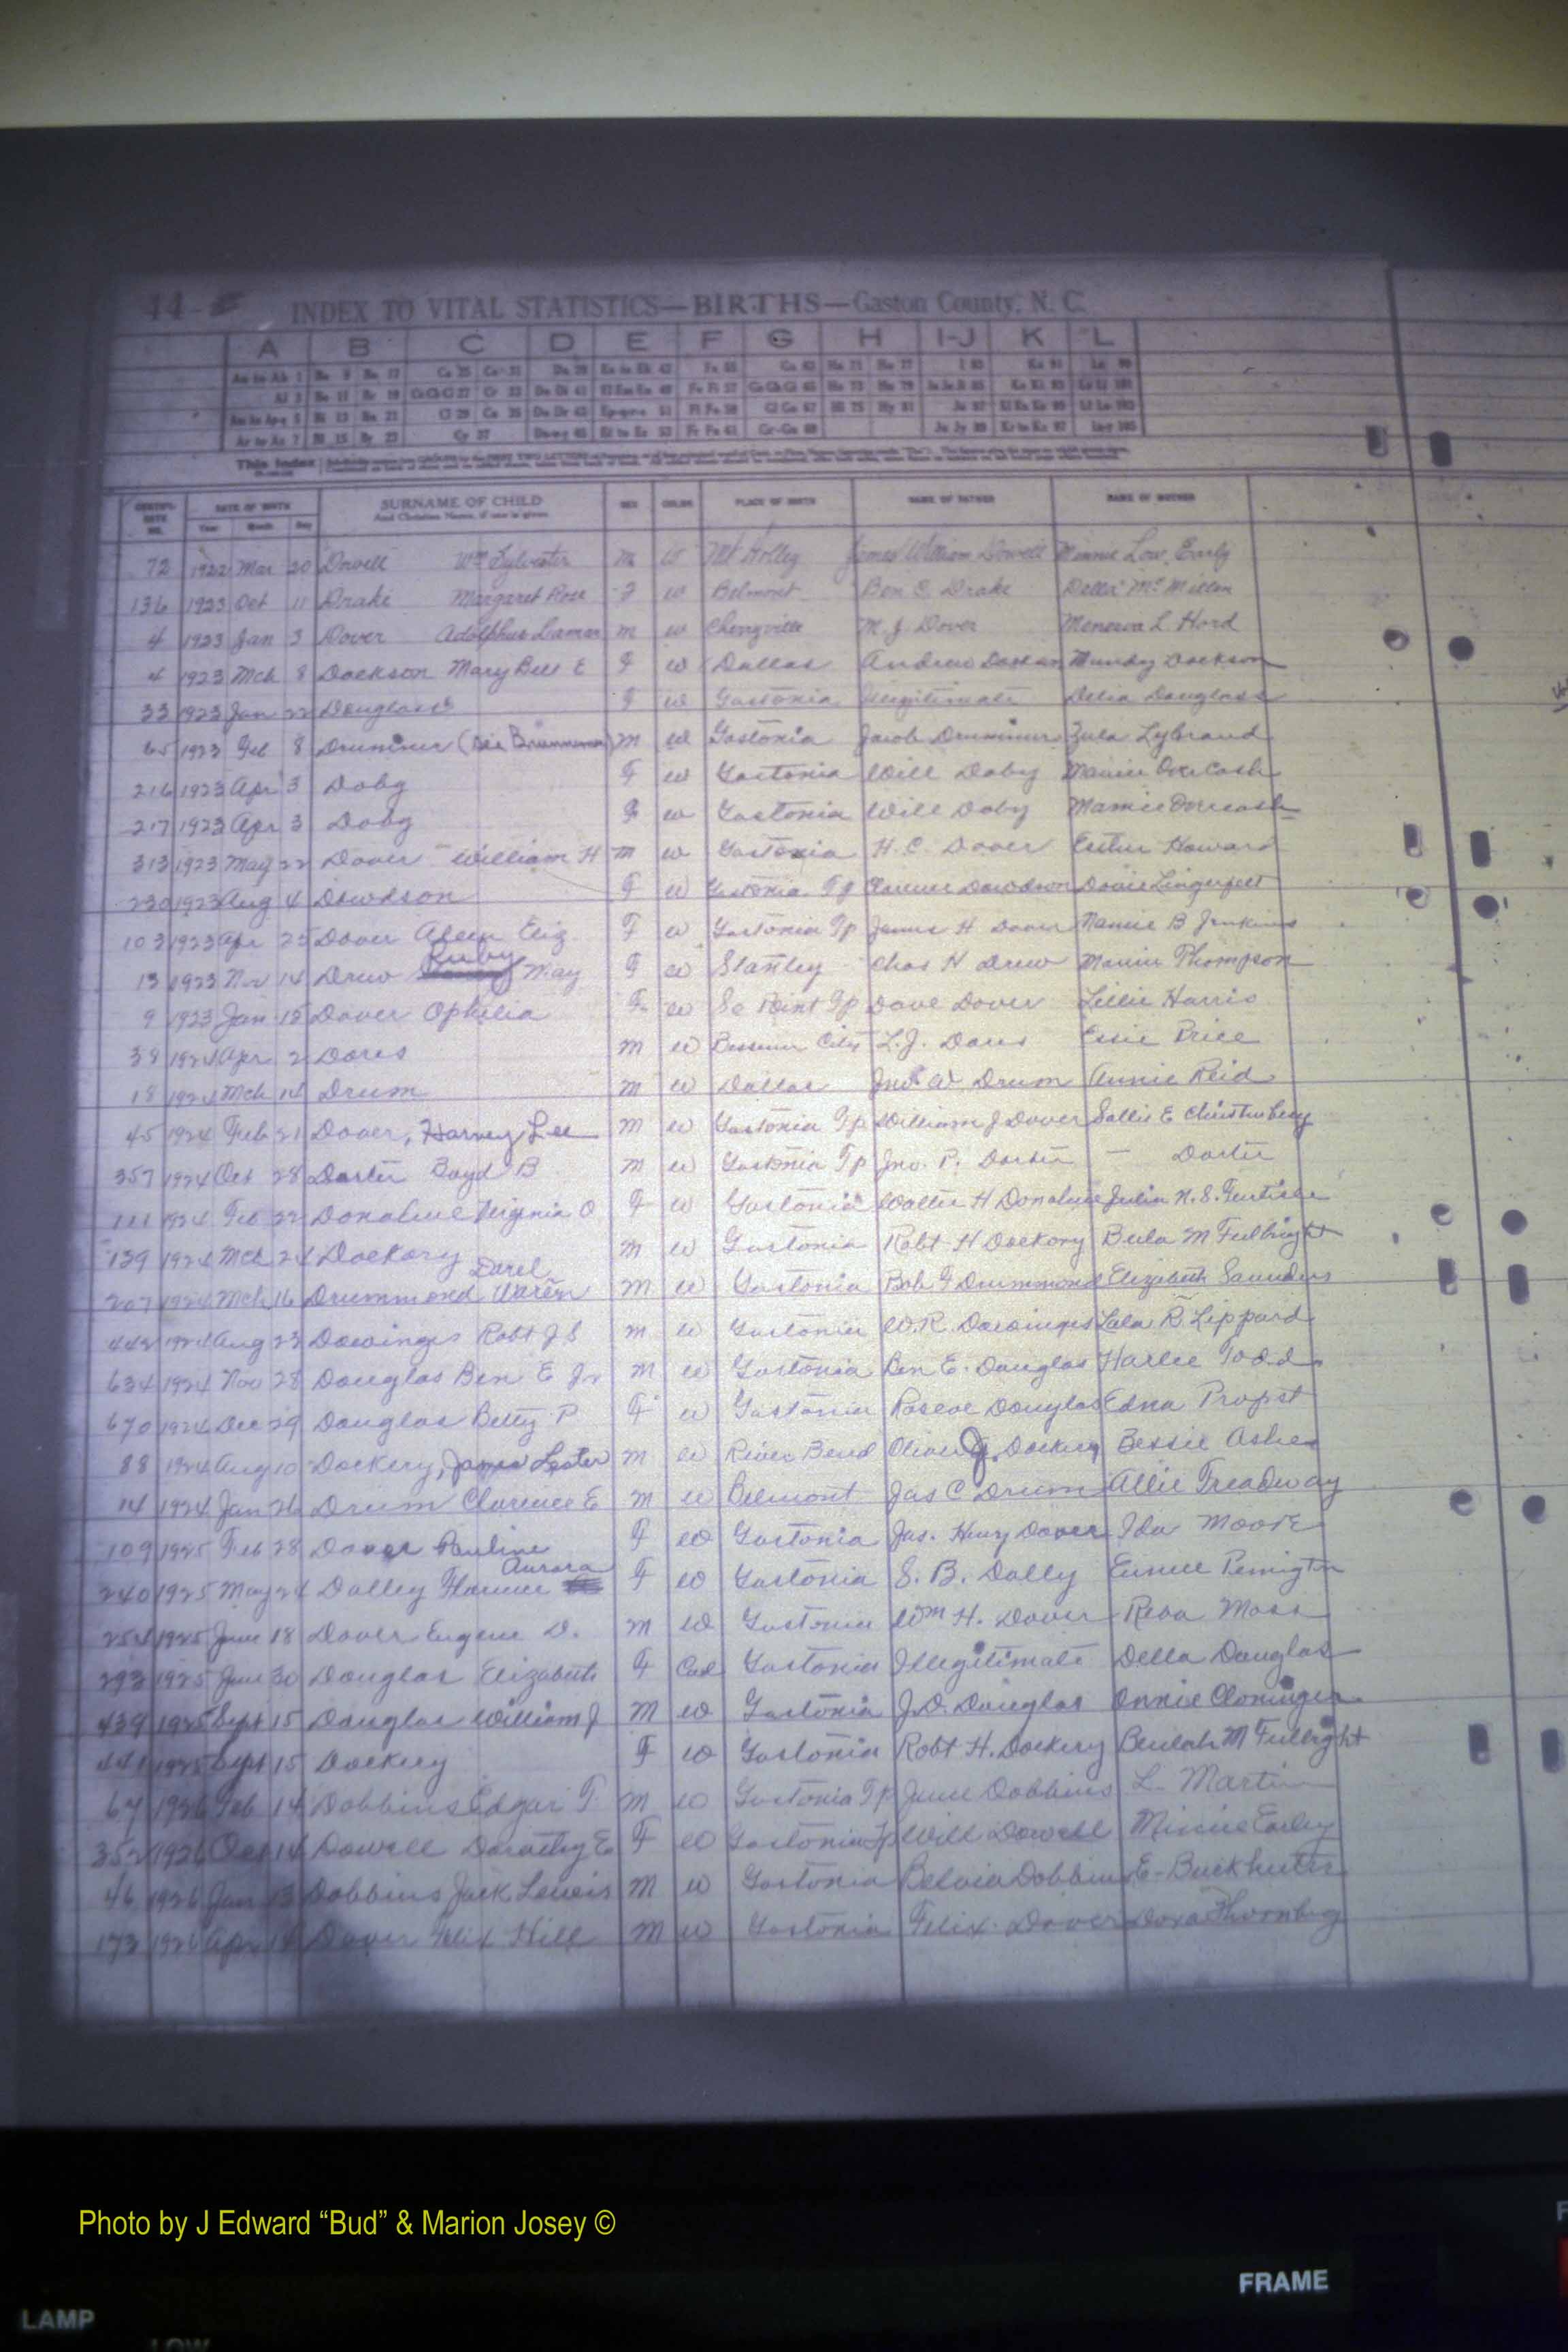 44
INDEX TO VITAL STATISTICS—BIRTHS—Gaston County, N. C.
A B C D E F G H I-J K L
This Index
CERTIFI-CATE NO. DATE OF BIRTH Year Month Day SURNAME OF CHILD And Christian Name, if one is given SEX COLOR PLACE OF BIRTH NAME OF FATHER NAME OF MOTHER
72 1922 Mar 20 Dowell Wm Sylvester M W Mt Holley James William Dowell Minnie Low Early
136 1923 Oct 11 Drake Margaret Rose F W Belmont Ben C Drake Della McMillan
4 1923 Jan 3 Dover Adolphus Lamar M W Cherryville M. J. Dover Menerva L Hord
4 1923 Mch 8 Dockson Mary Bell E F W Dallas Andrew Mundy Dockson
33 1923 Jan 22 Douglass F W Gastonia Illegitimate Delia Douglass
65 1923 Feb 8 Drummer M W Gastonia Jacob Drummer Zula Lybrand
216 1923 Apr 3 Doby F W Gastonia Will Doby Mamie Overcash
217 1923 Apr 3 Doby F W Gastonia Will Doby Mamie Overcash
313 1923 May 22 Dover William H M W Gastonia H. C. Dover Esther Howard
230 1923 Aug 4 Dowdson F W Gastonia Tp Clarence Dowdson Dovie Lingerfelt
103 1923 Apr 25 Dover Aleen Eliz F W Gastonia Tp James H Dover Nannie B Jenkins
13 1923 Nov 14 Drew Ruby May F W Stanley Chas H Drew Mamie Thompson
9 1923 Jan 15 Dover Ophelia F W So Point Tp Dave Dover Lillie Harris
38 1924 Apr 2 Dores M W Bessemer City L. J. Dores Essie Price
18 1924 Mch 14 Drum M W Dallas Jno W Drum Annie Reid
45 1924 Feb 21 Dover, Harvey Lee M W Gastonia Tp William J Dover Sallie E Christenbery
357 1924 Oct 28 Dorter Boyd B M W Gastonia Tp Jno. P. Dorter — Dorter
111 1924 Feb 22 Donahue Virginia O F W Gastonia Walter H Donahue Julia N. S.
139 1924 Mch 24 Dockory M W Gastonia Robt H Dockory Beula M Fulbright
207 1924 Mch 16 Drummond Darel Waren M W Gastonia Bob F Drummond Elizabeth Saunders
442 1924 Aug 23 Downings Robt J S M W Gastonia W. R. Downings Lula R Lippard
634 1924 Nov 28 Douglas Ben E Jr M W Gastonia Ben E. Douglas Harlee Todd
670 1924 Dec 29 Douglas Betty P F W Gastonia Roscoe Douglas Edna Propst
88 1924 Aug 10 Dockery, James Lester M W River Bend Oliver J. Dockery Bessie Ashe
14 1924 Jan 26 Drum Clarence E M W Belmont Jas C Drum Allie Treadway
109 1925 Feb 28 Dover Pauline F W Gastonia Jas. Henry Dover Ida Moore
240 1925 May 24 Dolley Florence Aurora F W Gastonia S. B. Dolly Eunice Penington
254 1925 June 18 Dover Eugene D. M W Gastonia Wm H. Dover Reba Moss
293 1925 June 30 Douglas Elizabeth F Col Gastonia Illegitimate Della Douglas
439 1925 Sept 15 Douglas William J M W Gastonia J. D. Douglas Onnie Cloninger
441 1925 Sept 15 Dockery F W Gastonia Robt H. Dockery Beulah M Fulbright
67 1926 Feb 14 Dobbins Edgar T M W Gastonia Tp June Dobbins L Martin
352 1926 Oct 14 Dowell Dorothy E F W Gastonia Tp Will Dowell Minnie Earley
46 1926 Jan 13 Dobbins Jack Lewis M W Gastonia Belvia Dobbins E
173 1926 Apr 14 Dover Felix Hill M W Gastonia Felix Dover Dora Thornbrg
Photo by J Edward “Bud” & Marion Josey ©
FRAME
LAMP
LOW